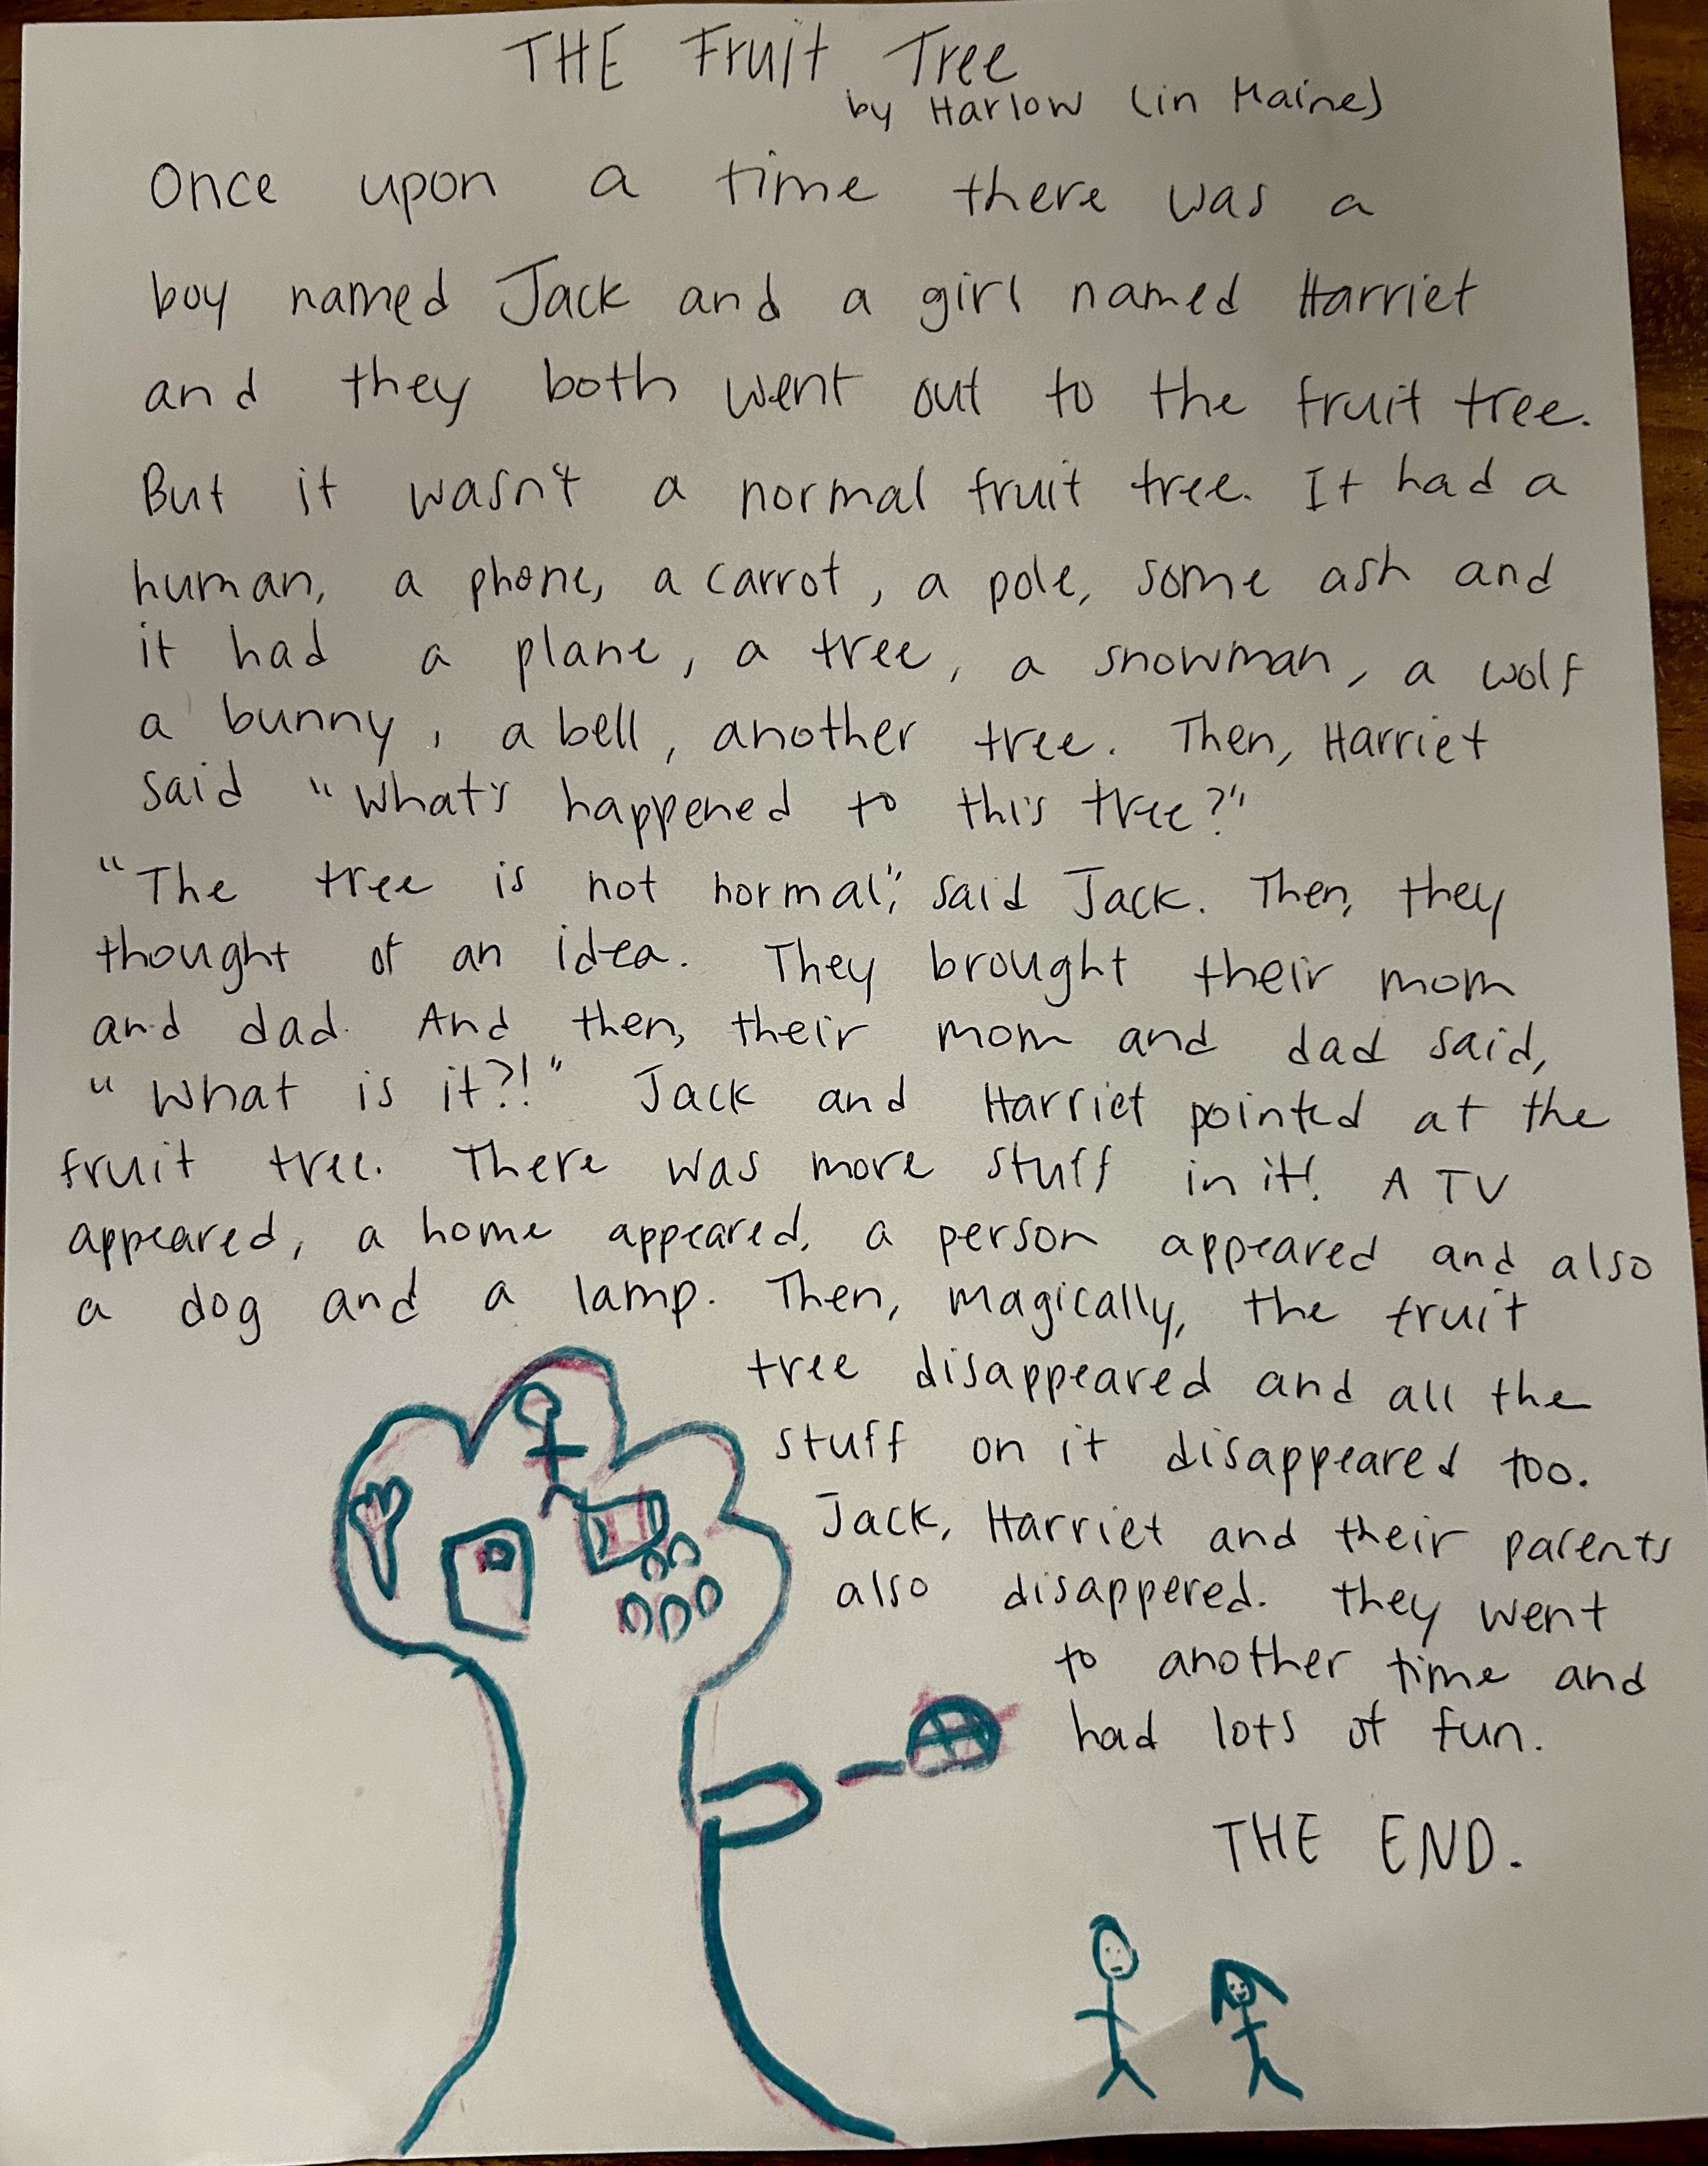 THE Fruit Tree
by Harlow (in Maine)
Once upon a time there was a
boy named Jack and a girl named Harriet
and they both went out to the fruit tree.
But it wasn't a normal fruit tree. It had a
human, a phone, a carrot, a pole, some ash and
it had a plane, a tree, a snowman, a wolf
a bunny, a bell, another tree. Then, Harriet
said "What's happened to this tree?"
"The tree is not normal", said Jack. Then, they
thought of an idea. They brought their mom
and dad. And then, their mom and dad said,
"What is it?!" Jack and Harriet pointed at the
fruit tree. There was more stuff in it! A TV
appeared, a home appeared, a person appeared and also
a dog and a lamp. Then, magically, the fruit
tree disappeared and all the
stuff on it disappeared too.
Jack, Harriet and their parents
also disappered. They went
to another time and
had lots of fun.
THE END.